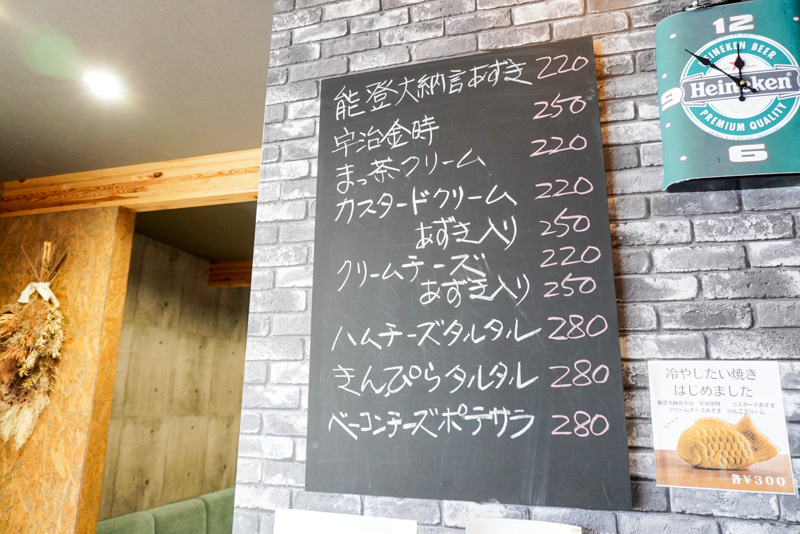 能登大納言あずき 220
宇治金時 250
まっ茶クリーム 220
カスタードクリーム 220
あずき入り 250
クリームチーズ 220
あずき入り 250
ハムチーズタルタル 280
きんぴらタルタル 280
ベーコンチーズポテサラ 280
12
9
6
HEINEKEN BEER
Heineken
PREMIUM QUALITY
冷やしたい焼き
はじめました
能登大納言小豆 宇治金時 カスタードあずき
クリームチーズあずき りんごクリーム
各¥300